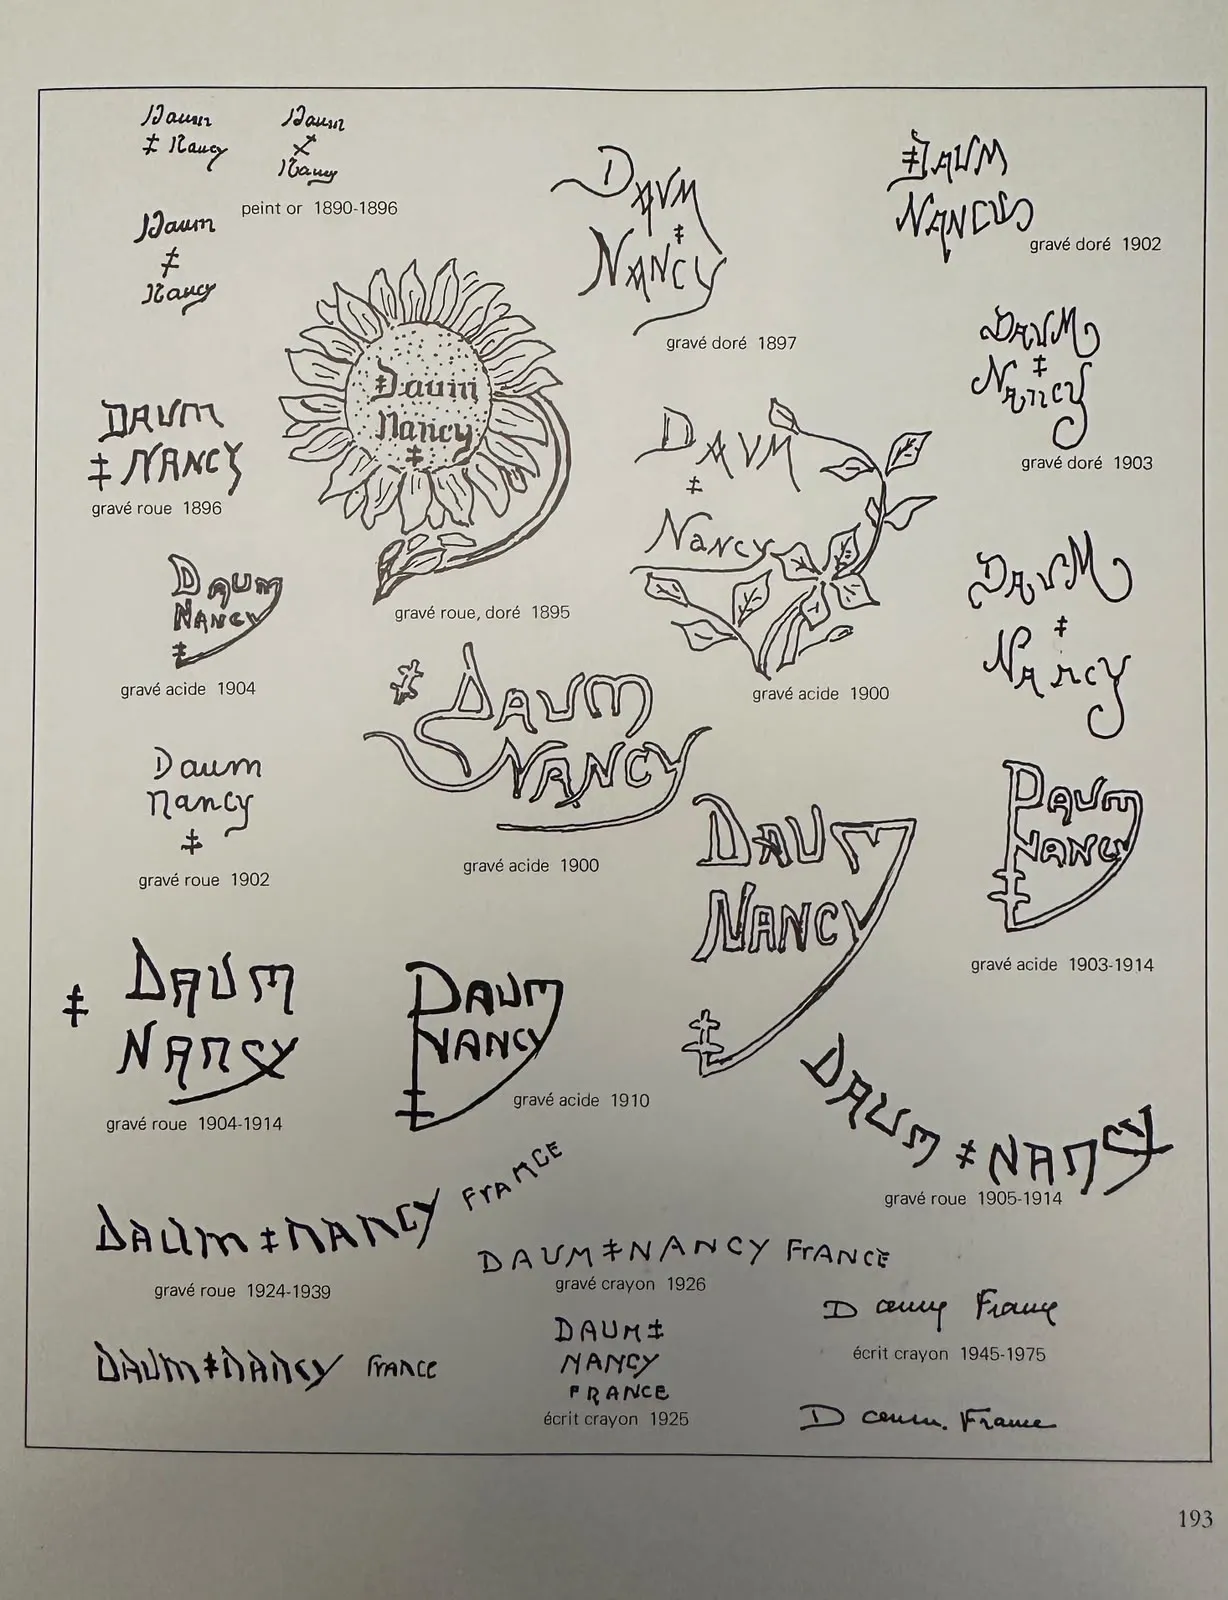 Daum
‡ Nancy
Daum
‡
Nancy
peint or 1890-1896
Daum
‡
Nancy
DAUM
‡
NANCY
gravé doré 1897
‡DAUM
NANCY
gravé doré 1902
‡Daum
Nancy
‡
gravé roue, doré 1895
DAUM
‡
NANCY
gravé doré 1903
DAUM
‡ NANCY
gravé roue 1896
DAUM
‡
Nancy
gravé acide 1900
DAUM
NANCY
‡
gravé acide 1904
DAUM
‡
NANCY
‡ DAUM
NANCY
gravé acide 1900
Daum
nancy
‡
gravé roue 1902
DAUM
NANCY
‡
DAUM
NANCY
‡
gravé acide 1903-1914
‡ DAUM
NANCY
gravé roue 1904-1914
DAUM
NANCY
‡
gravé acide 1910
DAUM ‡ NANCY
gravé roue 1905-1914
DAUM ‡ NANCY FRANCE
gravé roue 1924-1939
DAUM ‡ NANCY FRANCE
gravé crayon 1926
DAUM ‡ NANCY FRANCE
DAUM ‡
NANCY
FRANCE
écrit crayon 1925
Daum France
écrit crayon 1945-1975
Daum. France
193